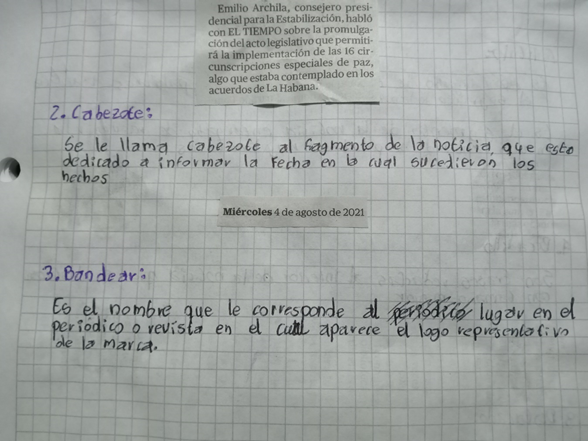 Emilio Archila, consejero presi-
dencial para la Estabilización, habló
con EL TIEMPO sobre la promulga-
ción del acto legislativo que permiti-
rá la implementación de las 16 cir-
cunscripciones especiales de paz,
algo que estaba contemplado en los
acuerdos de La Habana.
2. Cabezote:
Se le llama cabezote al fragmento de la noticia que esta
dedicado a informar la Fecha en la cual sucedieron los
hechos
Miércoles 4 de agosto de 2021
3. Bandear:
Es el nombre que le corresponde al periódico lugar en el
periodico o revista en el cual aparece el logo representativo
de la marca.